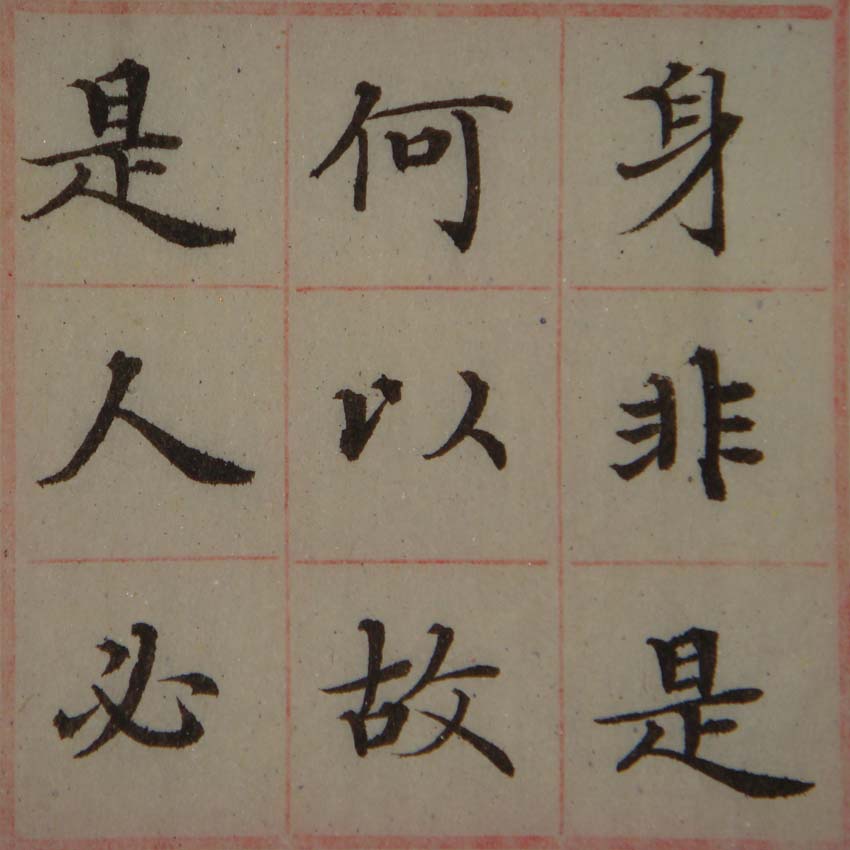 身非是
何以故
是人必